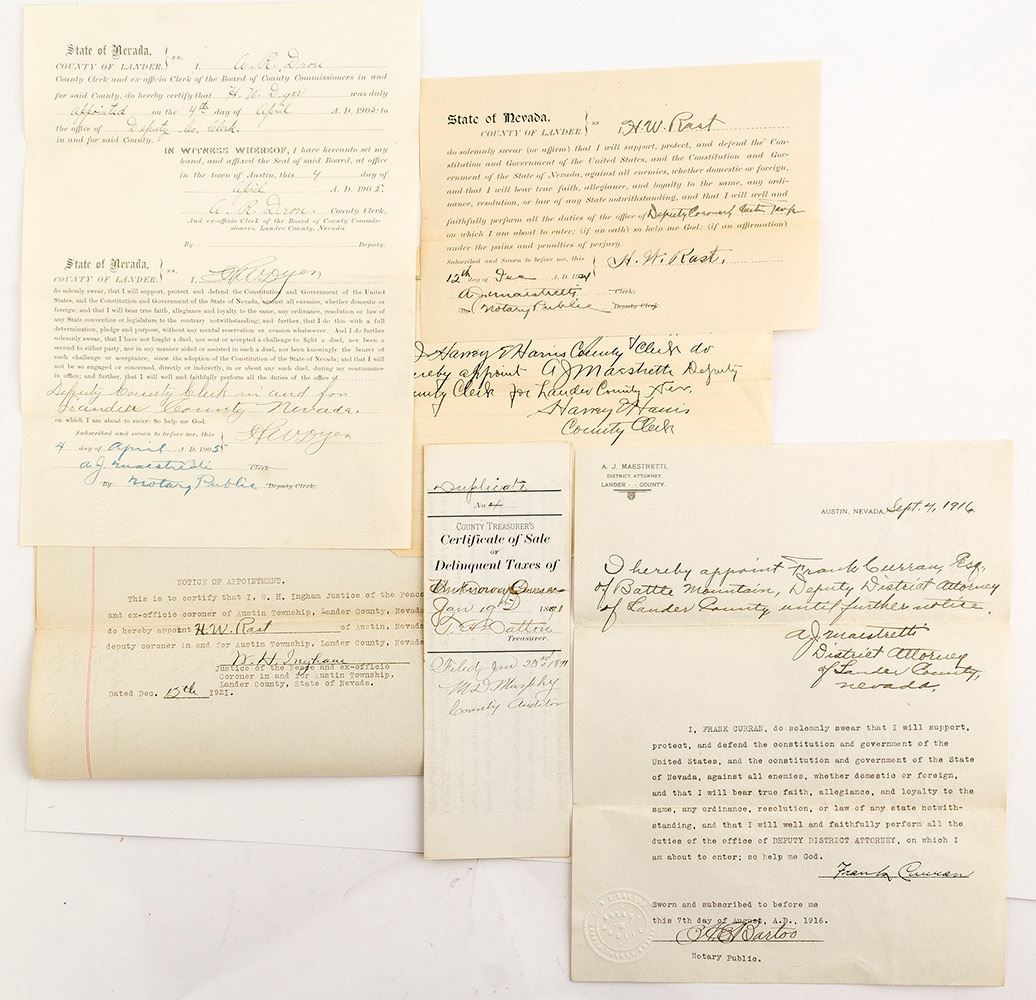 State of Nevada,
COUNTY OF LANDER. } ss. I, W. R. Dron
County Clerk and ex-officio Clerk of the Board of County Commissioners in and
for said County, do hereby certify that H. W. Dyer was duly
Appointed on the 4th day of April A. D. 1905 to
the office of Deputy Co, Clerk.
in and for said County.
IN WITNESS WHEREOF, I have hereunto set my
hand, and affixed the Seal of said Board, at office
in the town of Austin, this 4 day of
April A. D. 1905.
W. R. Dron. County Clerk,
And ex-officio Clerk of the Board of County Commis-
sioners, Lander County, Nevada.
By Deputy.
State of Nevada,
COUNTY OF LANDER. } ss. I, H W Dyer
do solemnly swear, that I will support, protect and defend the Constitution and Government of the United
States, and the Constitution and Government of the State of Nevada, against all enemies, whether domestic or
foreign; and that I will bear true faith, allegiance and loyalty to the same, any ordinance, resolution or law of
any State convention or legislature to the contrary notwithstanding; and further, that I do this with a full
determination, pledge and purpose, without any mental reservation or evasion whatsoever. And I do further
solemnly swear, that I have not fought a duel, nor sent or accepted a challenge to fight a duel, nor been a
second to either party, nor in any manner aided or assisted in such a duel, nor been knowingly the bearer of
such challenge or acceptance, since the adoption of the Constitution of the State of Nevada; and that I will
not be so engaged or concerned, directly or indirectly, in or about any such duel, during my continuance
in office; and further, that I will well and faithfully perform all the duties of the office of
Deputy County Clerk in and for
Lander County Nevada.
on which I am about to enter: So help me God.
Subscribed and sworn to before me, this } H W Dyer
4 day of April A. D. 1905
A J Maestretti Clerk
By Notary Public Deputy Clerk.
State of Nevada,
COUNTY OF LANDER. } ss I, H. W. Rast
do solemnly swear (or affirm) that I will support, protect, and defend the Con-
stitution and Government of the United States, and the Constitution and Gov-
ernment of the State of Nevada, against all enemies, whether domestic or foreign,
and that I will bear true faith, allegiance, and loyalty to the same, any ordi-
nance, resolution, or law of any State notwithstanding, and that I will well and
faithfully perform all the duties of the office of Deputy Coroner Austin Twp
on which I am about to enter; (if an oath) so help me God; (if an affirmation)
under the pains and penalties of perjury.
Subscribed and Sworn to before me, this } H. W. Rast.
12th day of Dec A. D. 1921
A J Maestretti Clerk.
Notary Public Deputy Clerk
I Harry E Harris County Clerk do
hereby appoint A J Maestretti Deputy
County Clerk for Lander County Nev.
Harry E Harris
County Clerk
NOTICE OF APPOINTMENT.
This is to certify that I, W. H. Ingham Justice of the Peace
and ex-officio coroner of Austin Township, Lander County, Nevada
do hereby appoint H. W. Rast of Austin, Nevada
deputy coroner in and for Austin Township, Lander County, Nevada
W. H. Ingham
Justice of the Peace and ex-officio
Coroner in and for Austin Township,
Lander County, State of Nevada.
Dated Dec. 12th 1921.
Duplicate
No
COUNTY TREASURER'S
Certificate of Sale
OF
Delinquent Taxes of
Unknown Owner
Jan 19th 1891
Treasurer.
Filed Jan 23rd 1891
M D Murphy
County Auditor
A. J. MAESTRETTI,
DISTRICT ATTORNEY,
LANDER - - COUNTY.
AUSTIN, NEVADA, Sept. 4, 1916
I hereby appoint Frank Curran, Esq.
of Battle Mountain, Deputy District Attorney
of Lander County until further notice.
A J Maestretti
District Attorney
of Lander County,
Nevada.
I, FRANK CURRAN, do solemnly swear that I will support,
protect, and defend the constitution and government of the
United States, and the constitution and government of the State
of Nevada, against all enemies, whether domestic or foreign,
and that I will bear true faith, allegiance, and loyalty to the
same, any ordinance, resolution, or law of any state notwith-
standing, and that I will well and faithfully perform all the
duties of the office of DEPUTY DISTRICT ATTORNEY, on which I
am about to enter; so help me God.
Frank Curran
Sworn and subscribed to before me
this 7th day of August, A.D., 1916.
Bartoo
Notary Public.